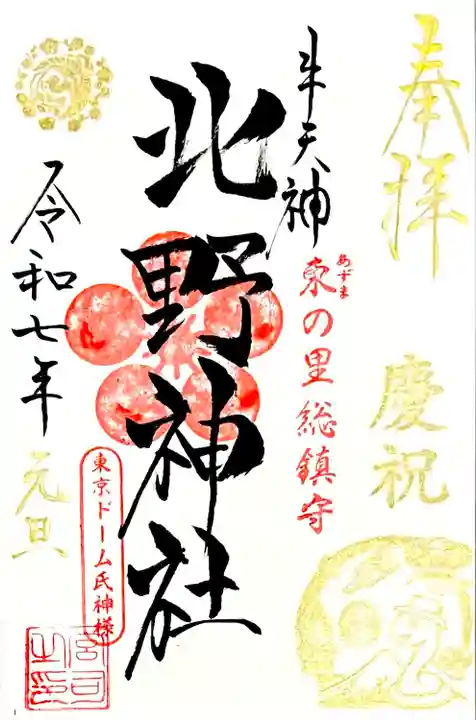 奉拝
慶祝
牛天神
東の里総鎮守
あずま
北野神社
令和七年
元旦
東京ドーム氏神様
宮司之印